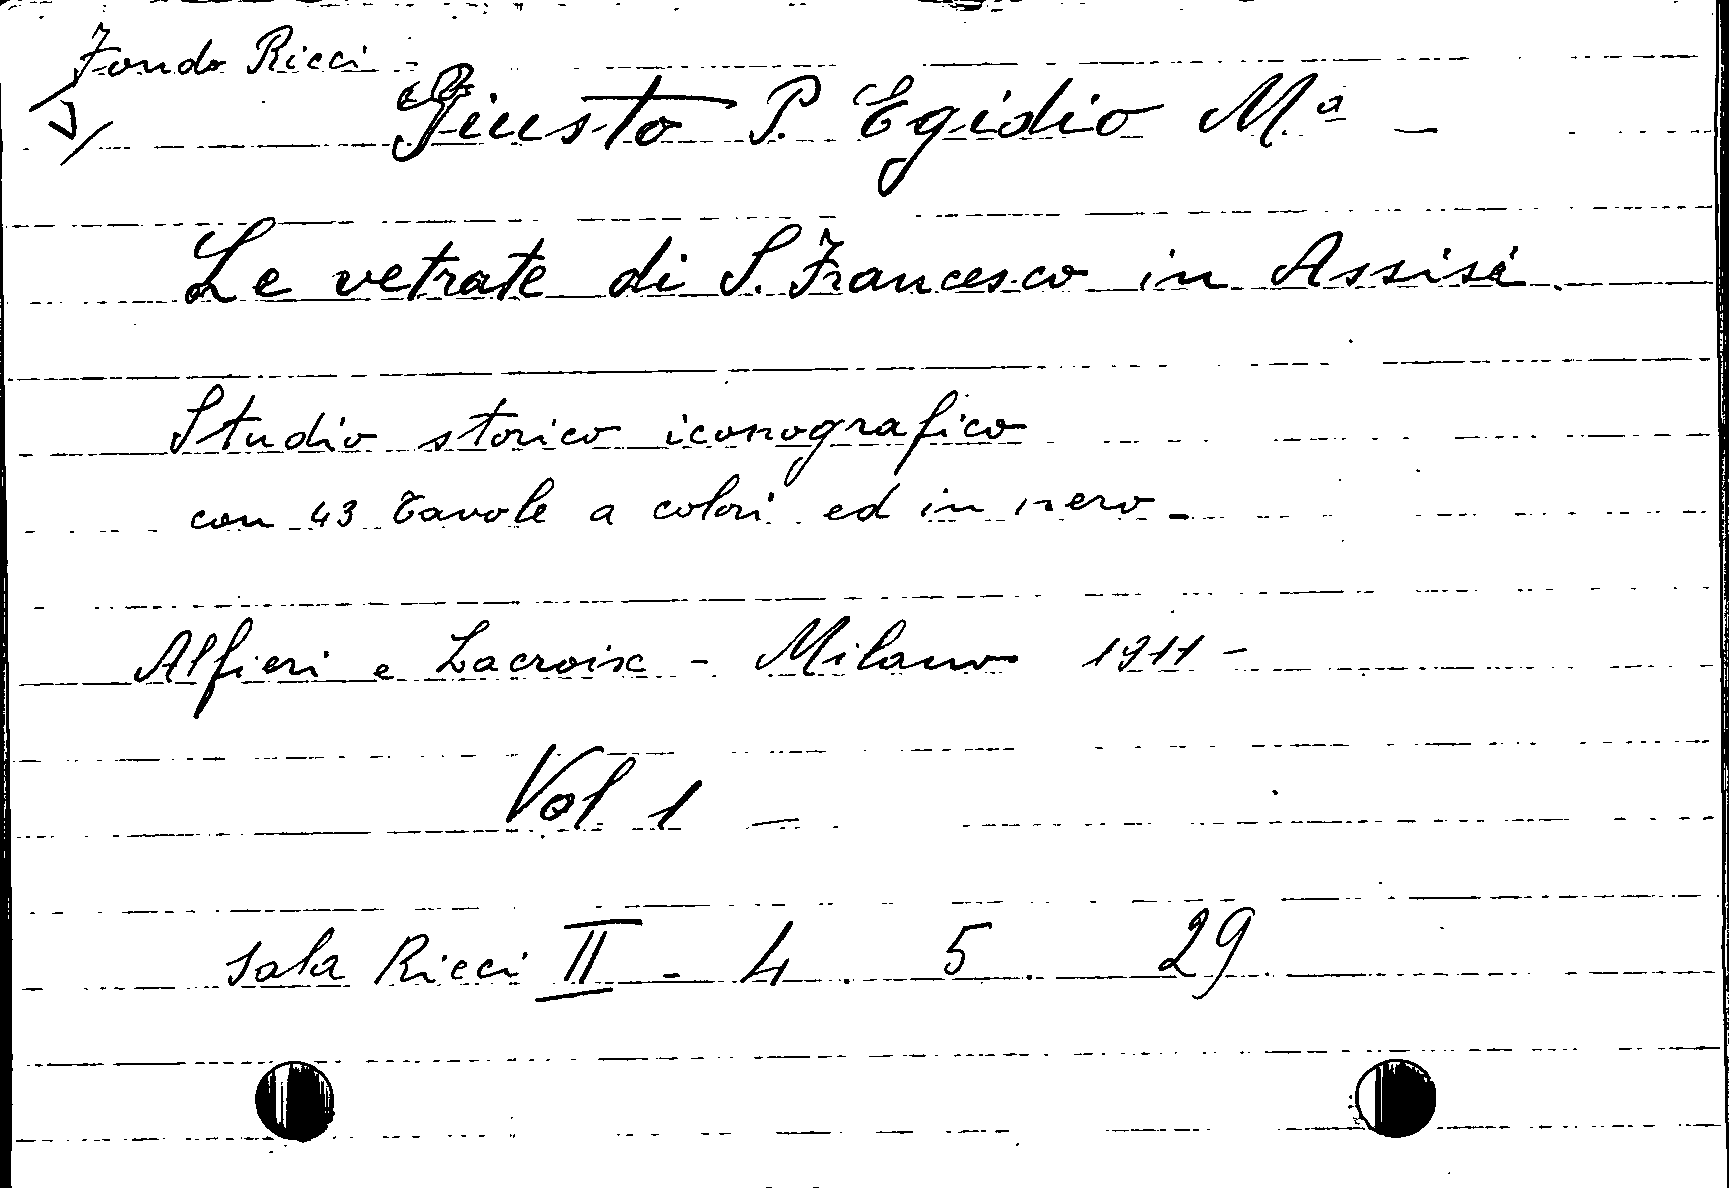 Fondo Ricci -
Giusto P. Egidio M.ª -
Le vetrate di S. Francesco in Assisi.
Studio storico iconografico
con 43 tavole a colori ed in nero -
Alfieri e Lacroix - Milano 1911 -
Vol 1 -
Sala Ricci II - 4 . 5 . 29.